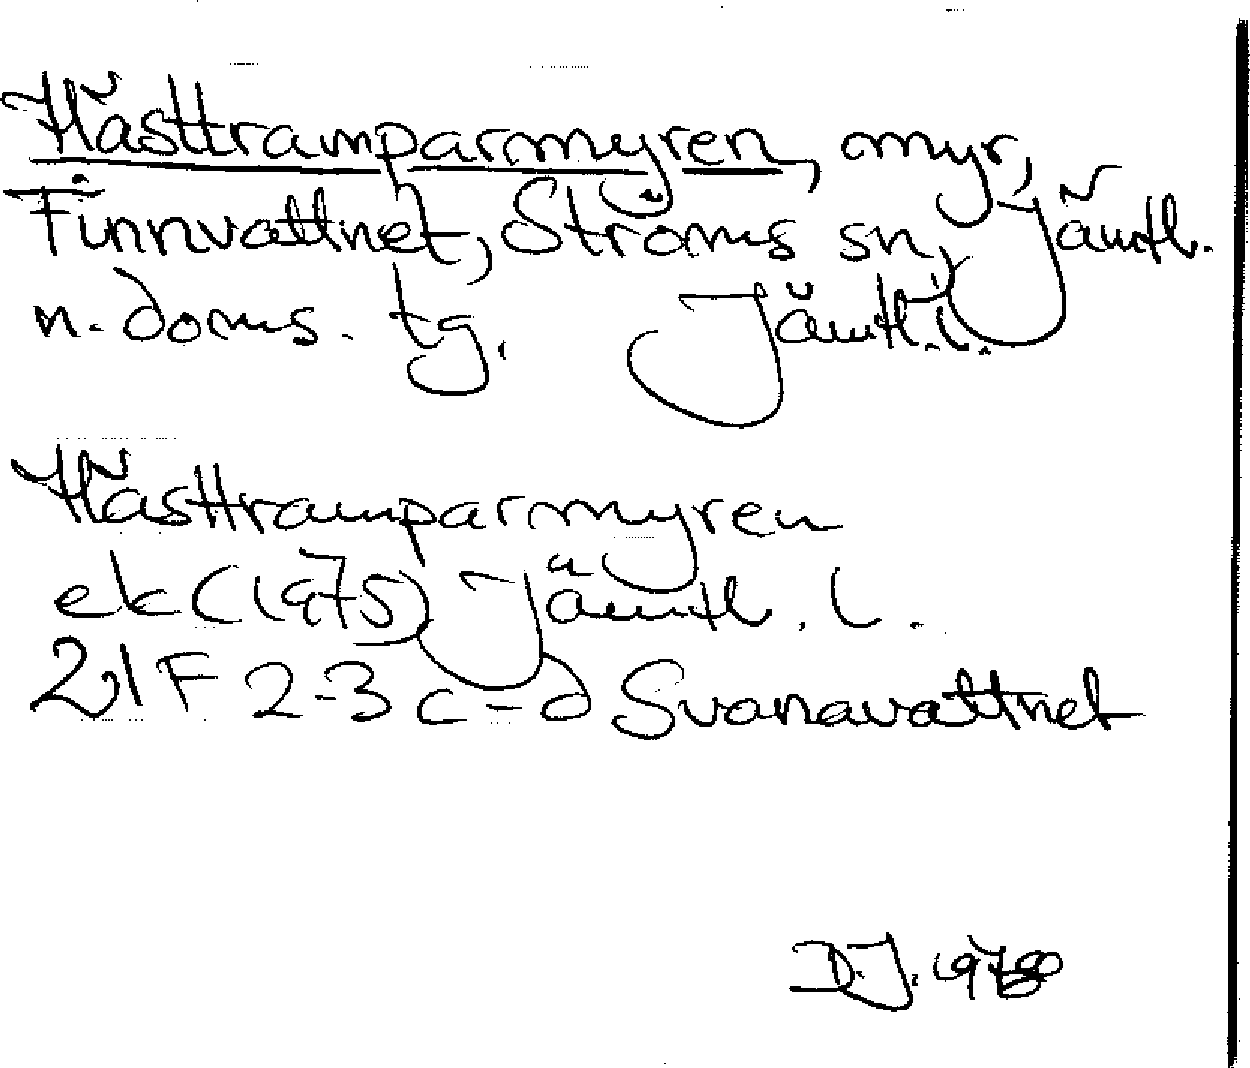 Hästtramparmyren, myr,
Finnvattnet, Ströms sn, Jämtl.
n. doms. tg. Jämtl. l.
Hästtramparmyren
ek (1975) Jämtl. l.
21F 2-3 c-d Svanavattnet
D.J.